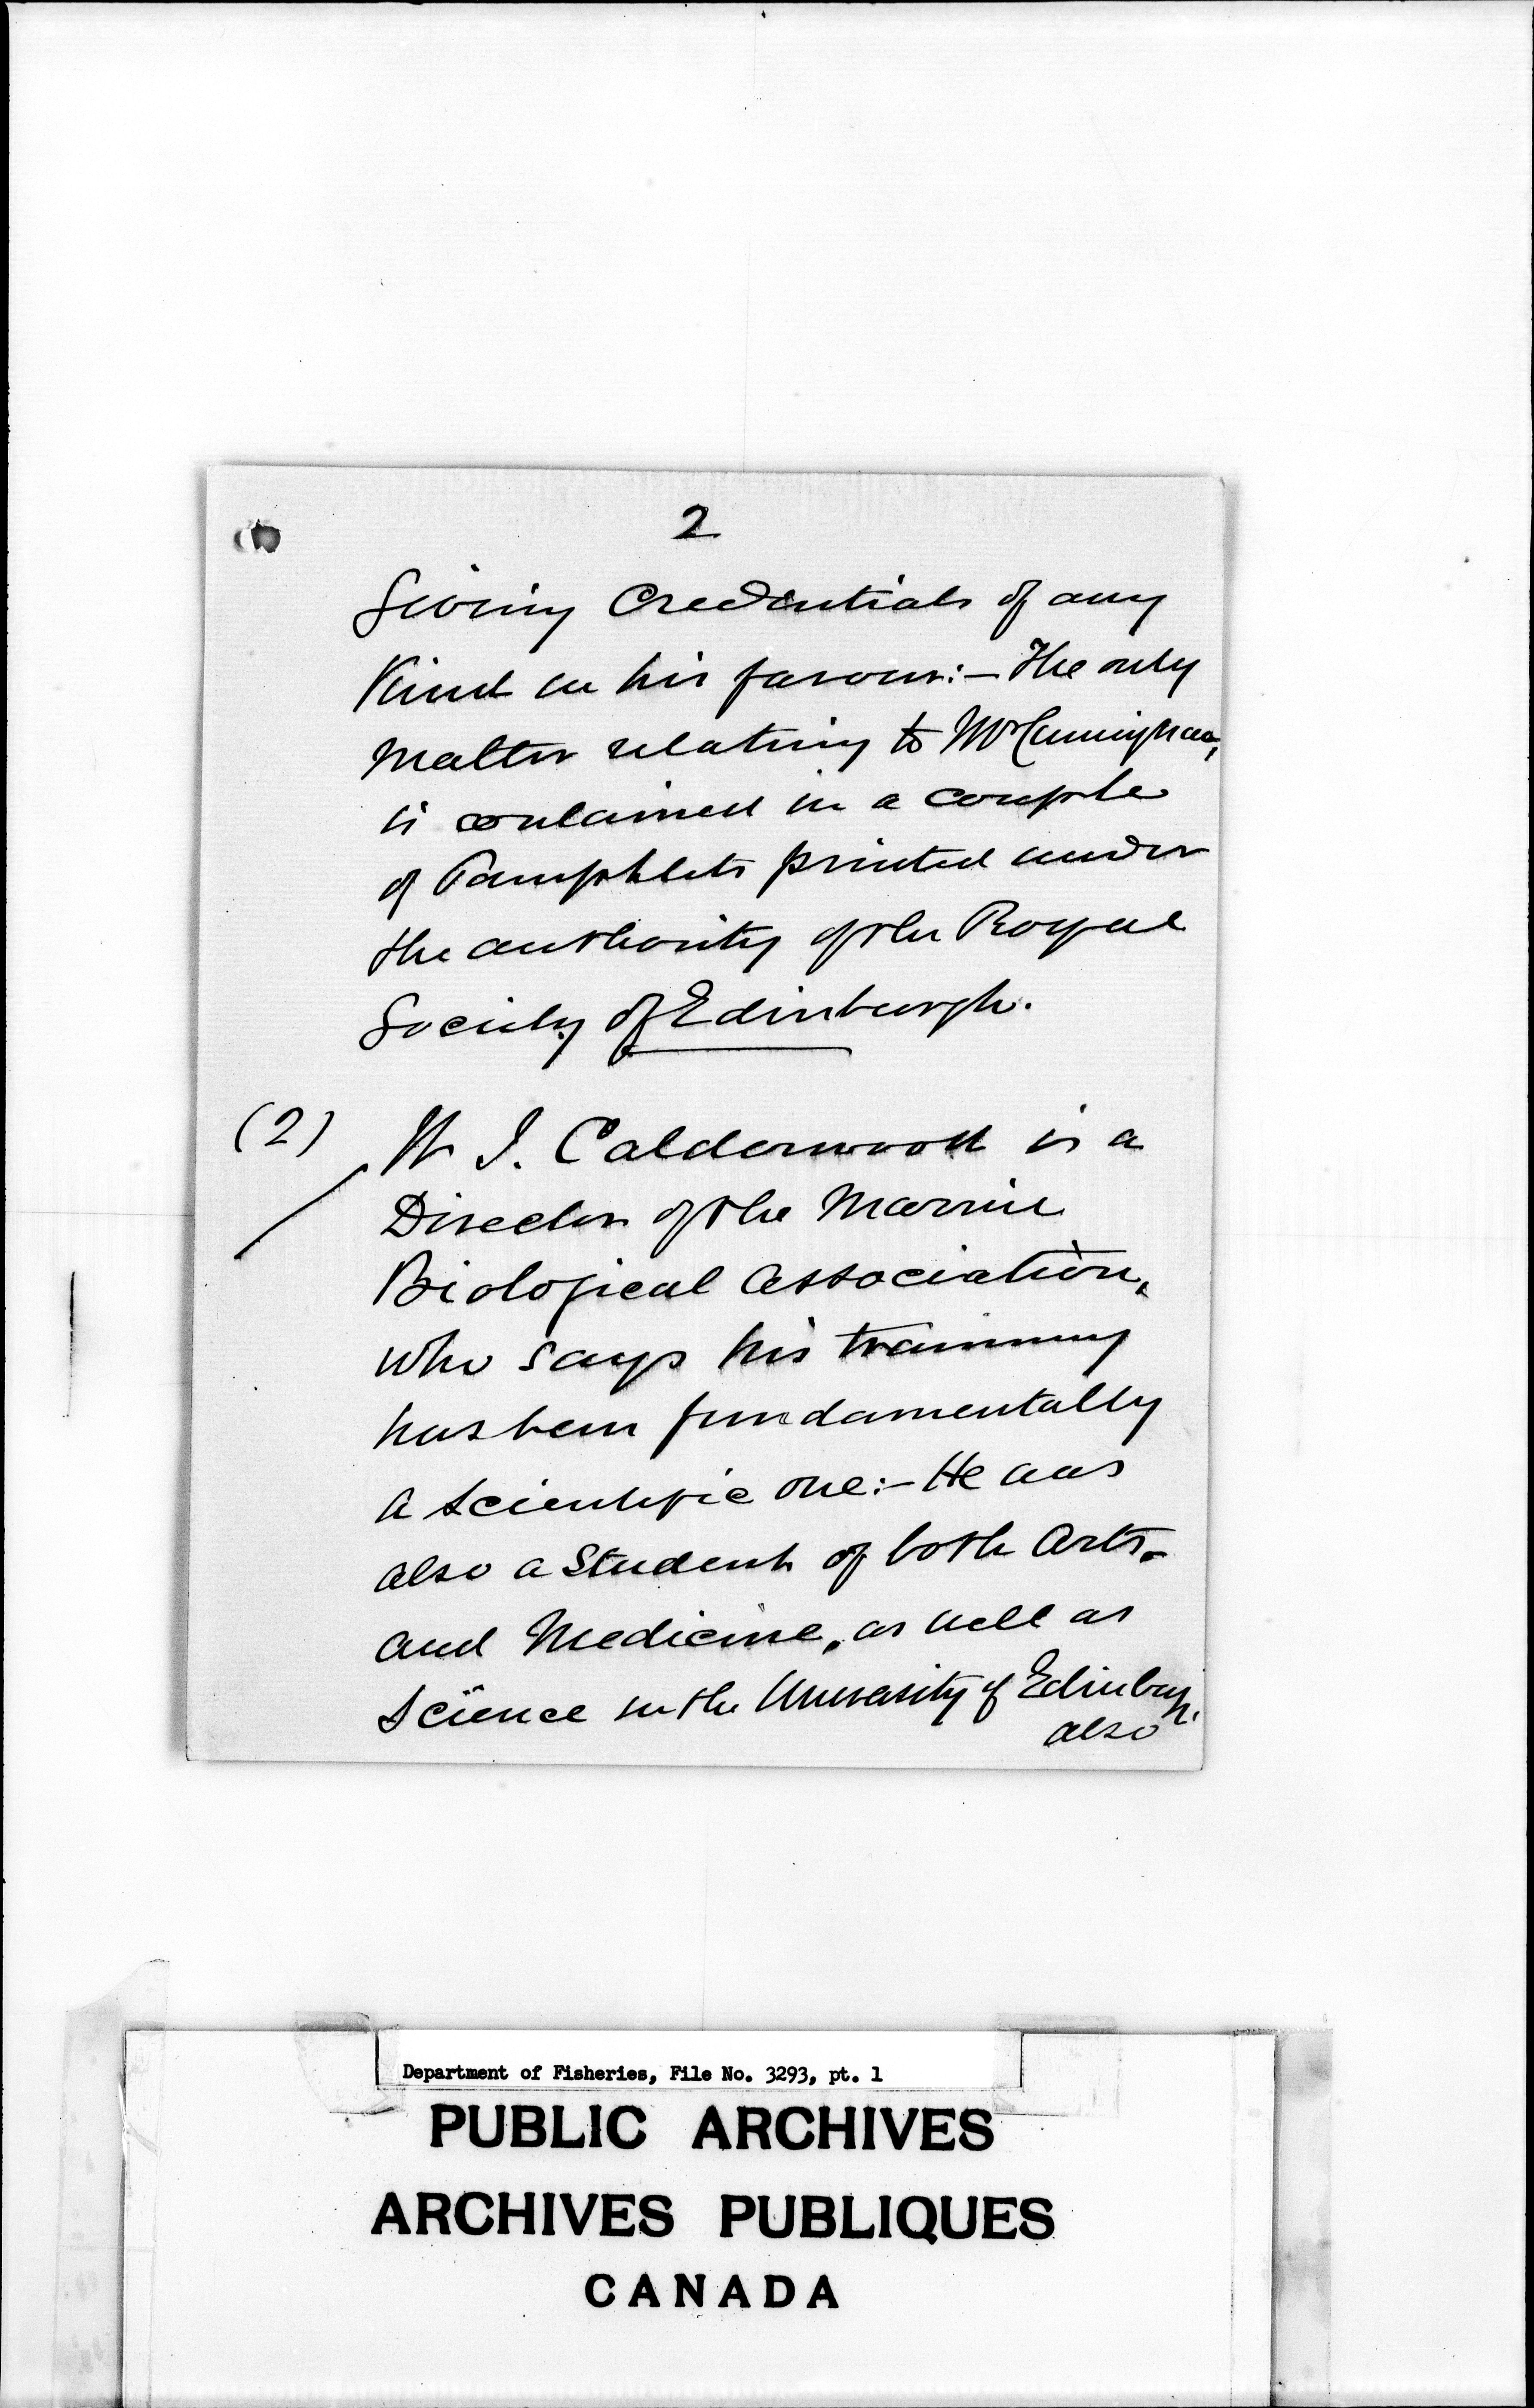 2
Giving Credentials of any
Kind in his favour:- The only
matter relating to Mr Cunningham,
is contained in a couple
of Pamphlets printed under
the authority of the Royal
Society of Edinburgh.
(2) W I. Calderwood is a
Director of the Marine
Biological Association,
who says his training
has been fundamentally
a scientific one:- He was
also a Student of both Arts
and Medicine, as well as
Science in the University of Edinburgh.
also
Department of Fisheries, File No. 3293, pt. 1
PUBLIC ARCHIVES
ARCHIVES PUBLIQUES
CANADA